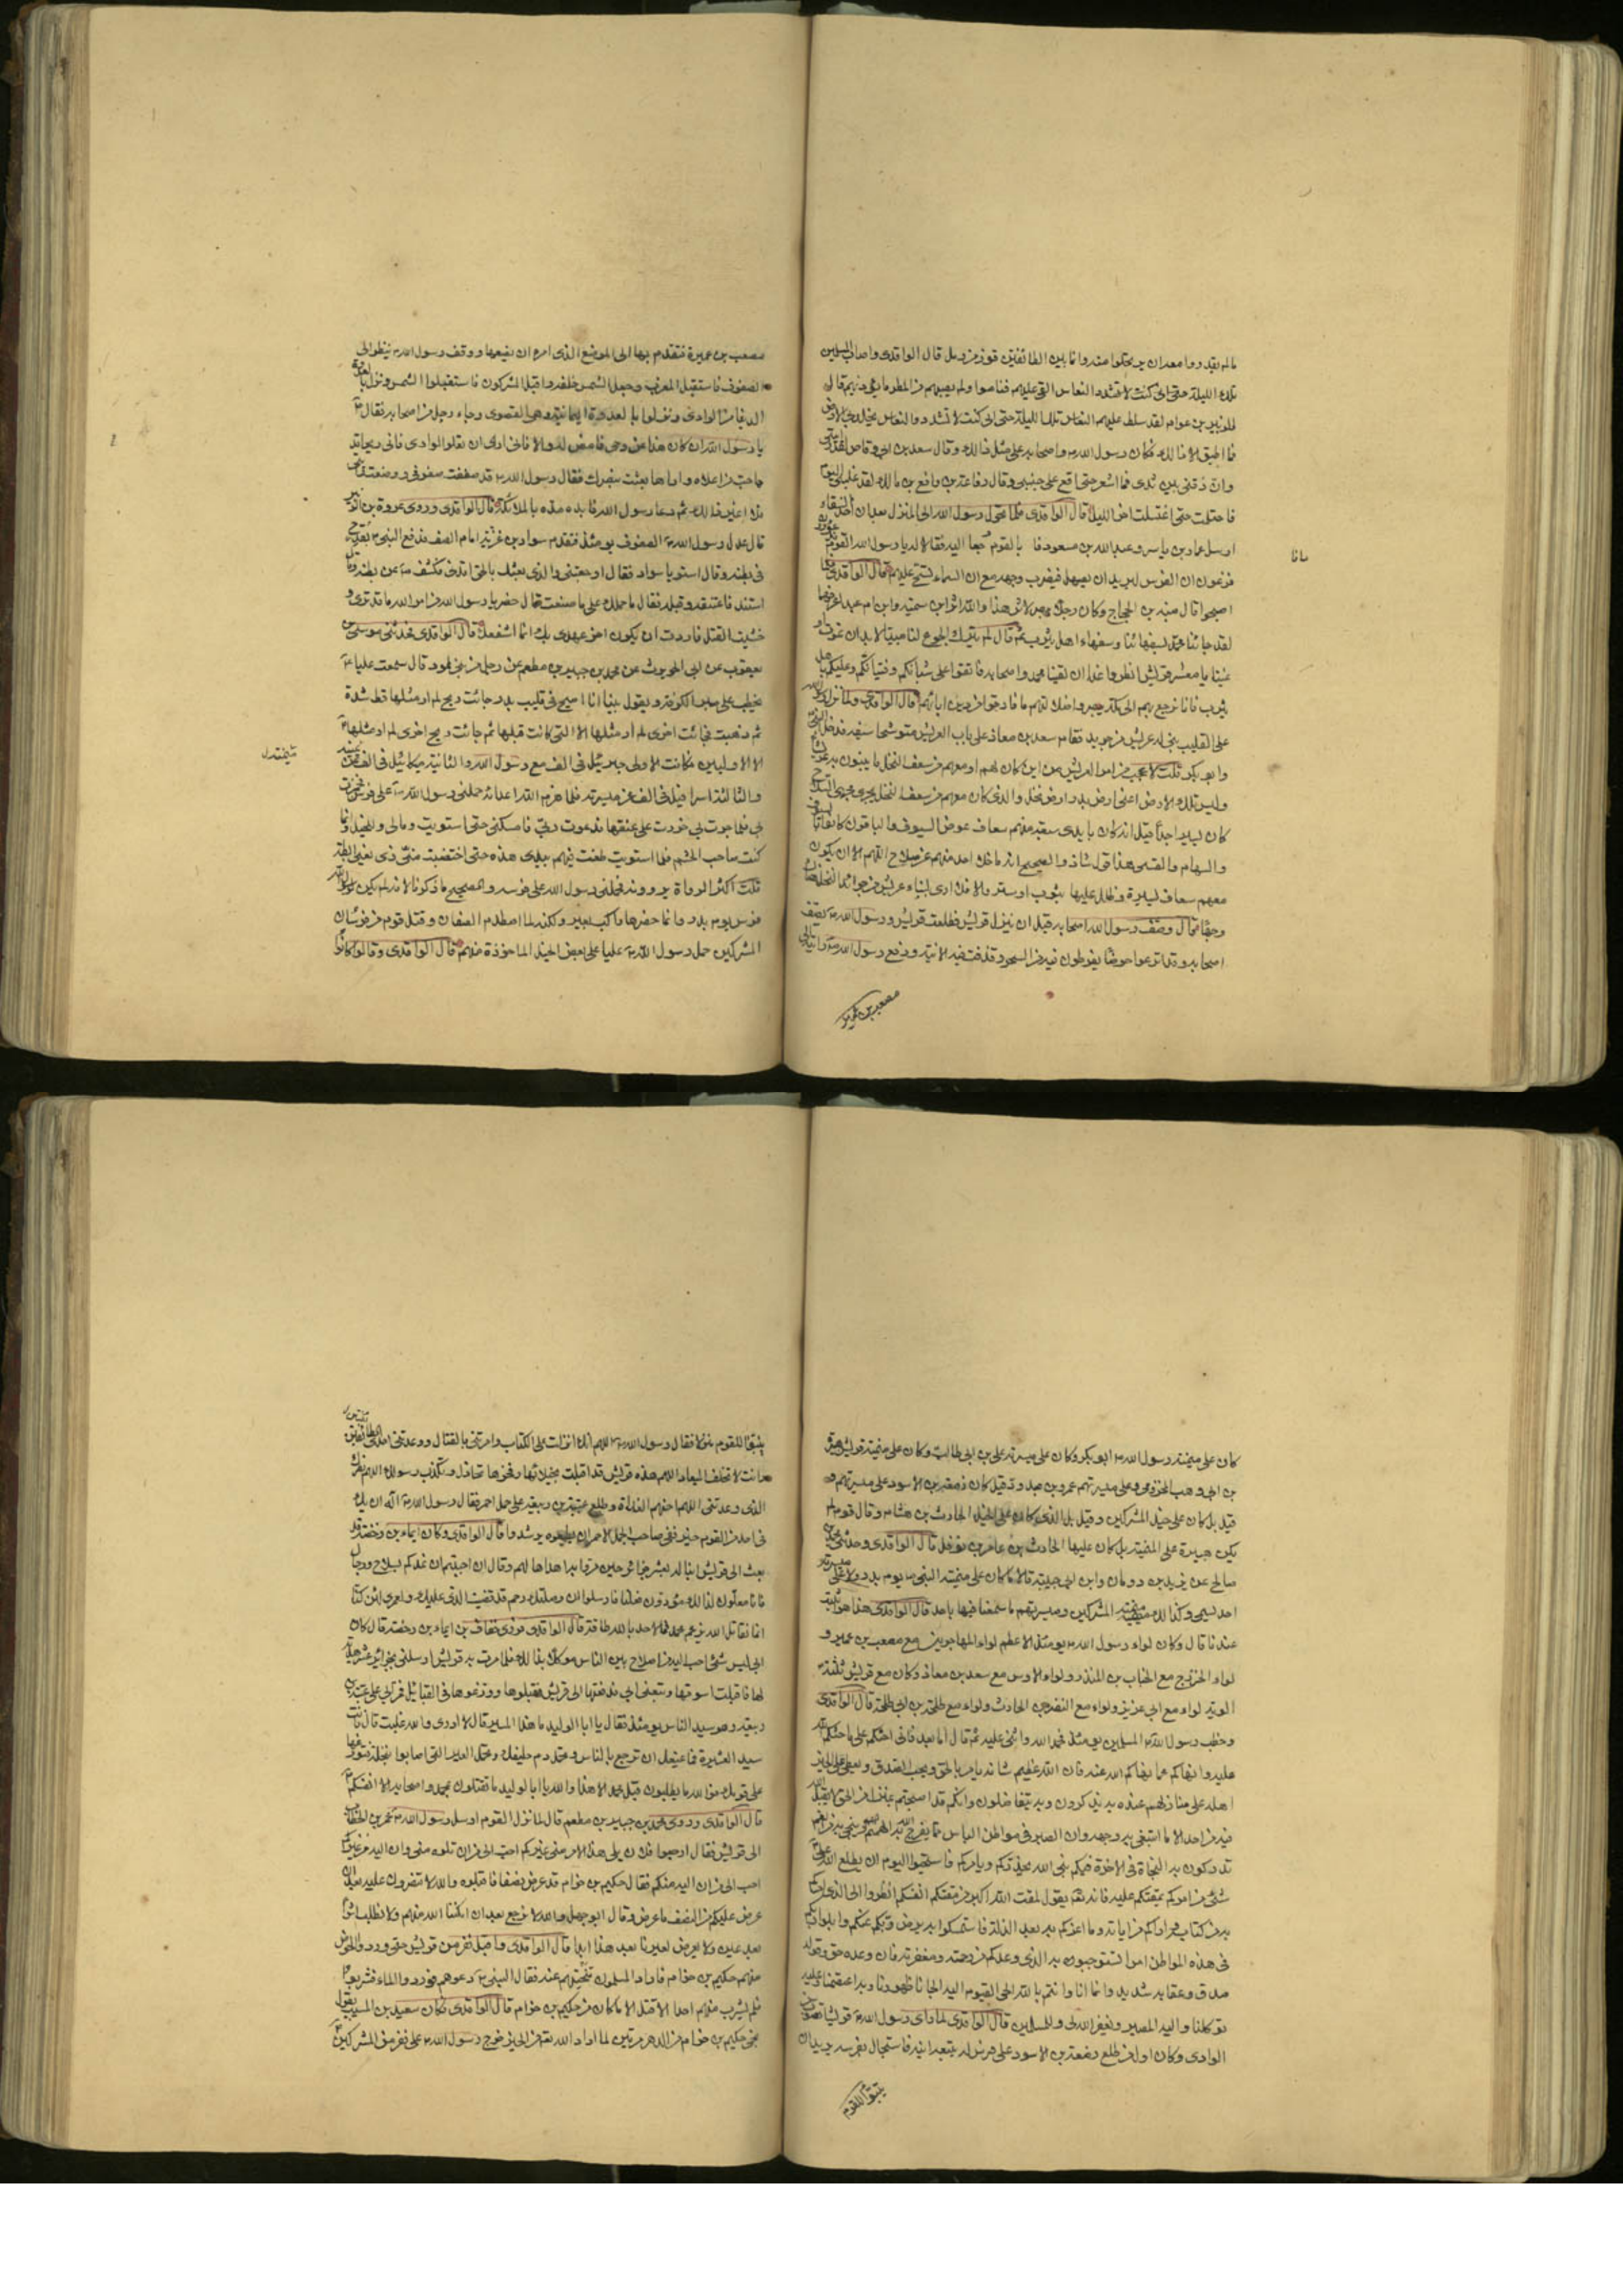 مالم يقدروا معه ان يرتحلوا منه وانما بين الطائفتين قوز من رمل قال الواقدي واصاب المسلمين
تلك الليلة حتى اني كنت لاتشدد والنعاس القي عليهم فناموا ولم يصبهم من المطر ما يؤذيهم قال
الزبير بن عوام لقد سلط عليهم النعاس تلك الليلة حتى اني كنت لاتشدد والنعاس يجلد بي الارض
فما اطيق الا ذالك فكان رسول الله واصحابه على مثل ذالك وقال سعد بن ابي وقاص لقد رايتني
وان ذقني بين ثديي فما اشعر حتى اقع على جنبي وقال رفاعة بن رافع بن مالك لقد غلبني النوم
فاحتلمت حتى اغتسلت اخر الليل قال الواقدي فلما تحول رسول الله الى المنزل بعد ان اخذ السقاء
ارسل عمار بن ياسر وعبد الله بن مسعود فا بالقوم رجعا اليه فقالا له يا رسول الله القوم
فزعون ان الفرس ليريد ان يصهل فيضرب وجهه مع ان السماء تسح عليهم قال الواقدي فلما
اصبحوا قال منبه بن الحجاج وكان رجلا يبصر الاثر هذا والله اثر ابن سمية وابن ام عبد اعرفهما
لقد جائنا محمد بسفهائنا وسفهاء اهل يثرب ثم قال لم يترك الجوع لنا مبيتا لابد ان نموت او
نميتا يا معشر قريش انظروا غدا ان لقينا محمدا واصحابه فاتقوا على شبانكم وفتيانكم وعليكم باهل
يثرب فانا نرجع بهم الى مكة يبصروا ضلالتهم ما فارقوا من دين ابائهم قال الواقدي ولما نزل رسول الله
على القليب بني له عريش من جريد فقام سعد بن معاذ على باب العريش متوشحا سيفه فدخل النبي
وابو بكر قلت لاعجب من امر العريش من اين كان لهم او معهم من سعف النخل ما يبنون به عريشا
وليس تلك الارض اعني ارض بدر ارض نخل والذي كان معهم من سعف النخل يجري مجرى السلاح
كان يسيرا جدا قيل انه كان بايدي سبعة منهم سعاف عوض السيوف والباقون كانوا بالسيوف
والسهام والقسي وهذا قول شاذ والصحيح انه ما خلا احد منهم عن سلاح اللهم الا ان يكون
معهم سعاف يسيرة وظلل عليها بثوب او ستر والا فلا ارى لبناء عريش من جريد النخل هناك
وجها قال وصف رسول الله اصحابه قبل ان ينزل قريش فطلعت قريش ورسول الله يصف
اصحابه وقد اترعوا حوضا يفرطون فيه من السحر وقذفت فيه الانية ودفع رسول الله رايته الى
مصعب بن عمير
مصعب بن عميرة فتقدم بها الى الموضع الذي امره ان يضعها ووقف رسول الله ينظر الى
الصفوف فاستقبل المغرب وجعل الشمس خلفه واقبل المشركون فاستقبلوا الشمس ونزل بالعدوة
الدنيا من الوادي ونزلوا بالعدوة اليمانية وهي القصوى وجاء رجل من اصحابه فقال
يا رسول الله ان كان هذا عن وحي فامض له والا فاني ارى ان تعلوا الوادي فاني ريحا قد
هاجت من اعلاه واراها بعثت بنصرك فقال رسول الله قد صففت صفوفي ووضعت رايتي
فلا اغير ذالك ثم دعا رسول الله فايده مده بالملائكة قال الواقدي وروى عروة بن الزبير
قال عدل رسول الله الصفوف يومئذ فتقدم سواد بن غزية امام الصف فدفع النبي بقدح
في بطنه وقال استو يا سواد فقال اوجعتني والذي بعثك بالحق اقدني فكشف عن بطنه وقال
استقد فاعتنقه وقبله فقال ما حملك على ما صنعت قال حضر يا رسول الله من امر الله ما قد ترى و
خشيت القتل فاردت ان يكون اخر عهدي بك انما اشفعك قال الواقدي فحدثني موسى بن
يعقوب عن ابي الحويرث عن محمد بن جبير بن مطعم عن رجل من بني اود قال سمعت عليا
يخطب على منبر الكوفة ويقول بينا انا اميح في قليب بدر جائت ريح لم ار مثلها قط شدة
ثم ذهبت فجائت اخرى لم ار مثلها الا التي كانت قبلها ثم جائت ريح اخرى لم ار مثلها
الا الاوليين فكانت الاولى جبرئيل في الف مع رسول الله والثانية ميكائيل في الف عن ميمنته
والثالثة اسرافيل في الف عن ميسرته فلما هزم الله اعدائه حملني رسول الله على فرسه فجرت
بي فلما جرت بي خررت على عنقها فدعوت ربي فامسكني حتى استويت ومالي وللخيل وانما
كنت صاحب الغنم فلما استويت طعنت فيهم بيدي هذه حتى اختضبت مني ذي يعني ابطه
قلت اكثر الرواة يروونه فحملني رسول الله على فرسه والصحيح ما ذكرناه لانه لم يكن لرسول الله
فرس يوم بدر وانما حضرها راكب بعير ولكنه لما اصطدم الصفان وقتل قوم من فرسان
المشركين حمل رسول الله عليا على بعض الخيل الماخوذة منهم قال الواقدي وقالوا كانوا
كان على ميمنة رسول الله ابو بكر وكان على ميسرته علي بن ابي طالب وكان على ميمنة قريش هبيرة
بن ابي وهب المخزومي وعلى ميسرتهم عمرو بن عبد ود قيل كان زمعة بن الاسود على ميسرتهم و
قيل بل كان على خيل المشركين وقيل بل الذي كان على الخيل الحارث بن هشام وقال قوم لم
يكن هبيرة على الميمنة بل كان عليها الحارث بن عامر بن نوفل قال الواقدي وحدثني محمد بن
صالح عن يزيد بن رومان وابن ابي حبيبة قالا ما كان على ميمنة النبي يوم بدر ولا على ميسرته
احد يسمى وكذالك ميمنة المشركين وميسرتهم ما سمعنا فيها باحد قال الواقدي هذا هو الثبت
عندنا قال وكان لواء رسول الله يومئذ الاعظم لواء المهاجرين مع مصعب بن عمير و
لواء الخزرج مع الحباب بن المنذر ولواء الاوس مع سعد بن معاذ وكان مع قريش ثلثة
الوية لواء مع ابي عزيز ولواء مع النضر بن الحارث ولواء مع طلحة بن ابي طلحة قال الواقدي
وخطب رسول الله المسلمين يومئذ فحمد الله واثنى عليه ثم قال اما بعد فاني احثكم على ما حثكم الله
عليه وانهاكم عما نهاكم الله عنه فان الله عظيم شانه يامر بالحق ويحب الصدق ويعطي على الخير
اهله على منازلهم عنده به يذكرون وبه يتفاضلون وانكم قد اصبحتم بمنزل من الحق لا يقبل الله
فيه من احد الا ما ابتغي به وجهه وان الصبر في مواطن الباس مما يفرج الله به الهم وينجي به من الغم
تدركون به النجاة في الاخرة فيكم نبي الله يحذركم ويامركم فاستحيوا اليوم ان يطلع الله على
شئ من امركم يمقتكم عليه فانه تع يقول لمقت الله اكبر من مقتكم انفسكم انظروا الى الذي امركم
به من كتابه واراكم من اياته وما اعزكم به بعد الذلة فاستمسكوا به يرض ربكم عنكم وابلوا ربكم
في هذه المواطن امرا تستوجبون به الذي وعدكم من رحمته ومغفرته فان وعده حق وقوله
صدق وعقابه شديد وانما انا وانتم بالله الحي القيوم اليه الجانا ظهورنا وبه اعتصمنا وعليه
توكلنا واليه المصير ويغفر الله لي وللمسلمين قال الواقدي لما راى رسول الله قريشا تصوب من
الوادي وكان اول من طلع زمعة بن الاسود على فرس له يتبعه ابنه فاستجال بفرسه يريد ان
يتبوأ للقوم
يتبوأ للقوم منزلا فقال رسول الله اللهم انك انزلت علي الكتاب وامرتني بالقتال ووعدتني احدى الطائفتين
وانت لا تخلف الميعاد اللهم هذه قريش قد اقبلت بخيلائها وفخرها تحادك وتكذب رسولك اللهم نصرك
الذي وعدتني اللهم احنهم الغداة وطلع عتبة بن ربيعة على جمل احمر فقال رسول الله ان يك
في احد من القوم خير ففي صاحب الجمل الاحمر ان يطيعوه يرشدوا قال الواقدي وكان ايماء بن رحضة قد
بعث الى قريش ابنا له بعشر جزائر حين مروا به اهداها لهم وقال ان احببتم ان نمدكم بسلاح ورجال
فانا معدون لذالك مؤدون فعلنا فارسلوا ان وصلتك رحم قد قضيت الذي عليك ولعمري لئن كنا
انما نقاتل الله بزعم محمد فما لاحد بالله طاقة قال الواقدي فروى خفاف بن ايماء بن رحضة قال كان
ابي ليس شئ احب اليه من اصلاح بين الناس موكلا بذالك فلما مرت به قريش ارسلني بجزائر عشر هدية
لها فاقبلت اسوقها وتبعني ابي فدفعتها الى قريش فقبلوها ووزعوها في القبائل فمر ابي على عتبة بن
ربيعة وهو سيد الناس يومئذ فقال يا ابا الوليد ما هذا المسير قال لا ادري والله غلبت قال فانت
سيد العشيرة فما يمنعك ان ترجع بالناس وتحمل دم حليفك وتحمل العير التي اصابوا بنخلة فتوزعها
على قومك فو الله ما يطلبون قبل محمد الا هذا والله يا ابا الوليد ما تقتلون بمحمد واصحابه الا انفسكم
قال الواقدي وروى محمد بن جبير بن مطعم قال لما نزل القوم ارسل رسول الله عمر بن الخطاب
الى قريش فقال ارجعوا فلان يلي هذا الامر مني غيركم احب الي من ان تلوه مني وان اليه من غيركم
احب الي من ان اليه منكم فقال حكيم بن حزام قد عرض نصفا فاقبلوه والله لا تنصرون عليه بعد ان
عرض عليكم من النصف ما عرض وقال ابو جهل والله لا نرجع بعد ان امكننا الله منهم ولا نطلب اثرا
بعد عين ولا يعرض لعيرنا بعد هذا ابدا قال الواقدي واقبل نفر من قريش حتى وردوا الحوض
منهم حكيم بن حزام فاراد المسلمون تنحيتهم عنه فقال النبي دعوهم فوردوا الماء فشربوا
فلم يشرب منهم احد الا قتل الا ما كان من حكيم بن حزام قال الواقدي فكان سعيد بن المسيب يقول
نجى حكيم بن حزام من الدهر مرتين لما اراد الله تع من الخير خرج رسول الله على نفر من المشركين